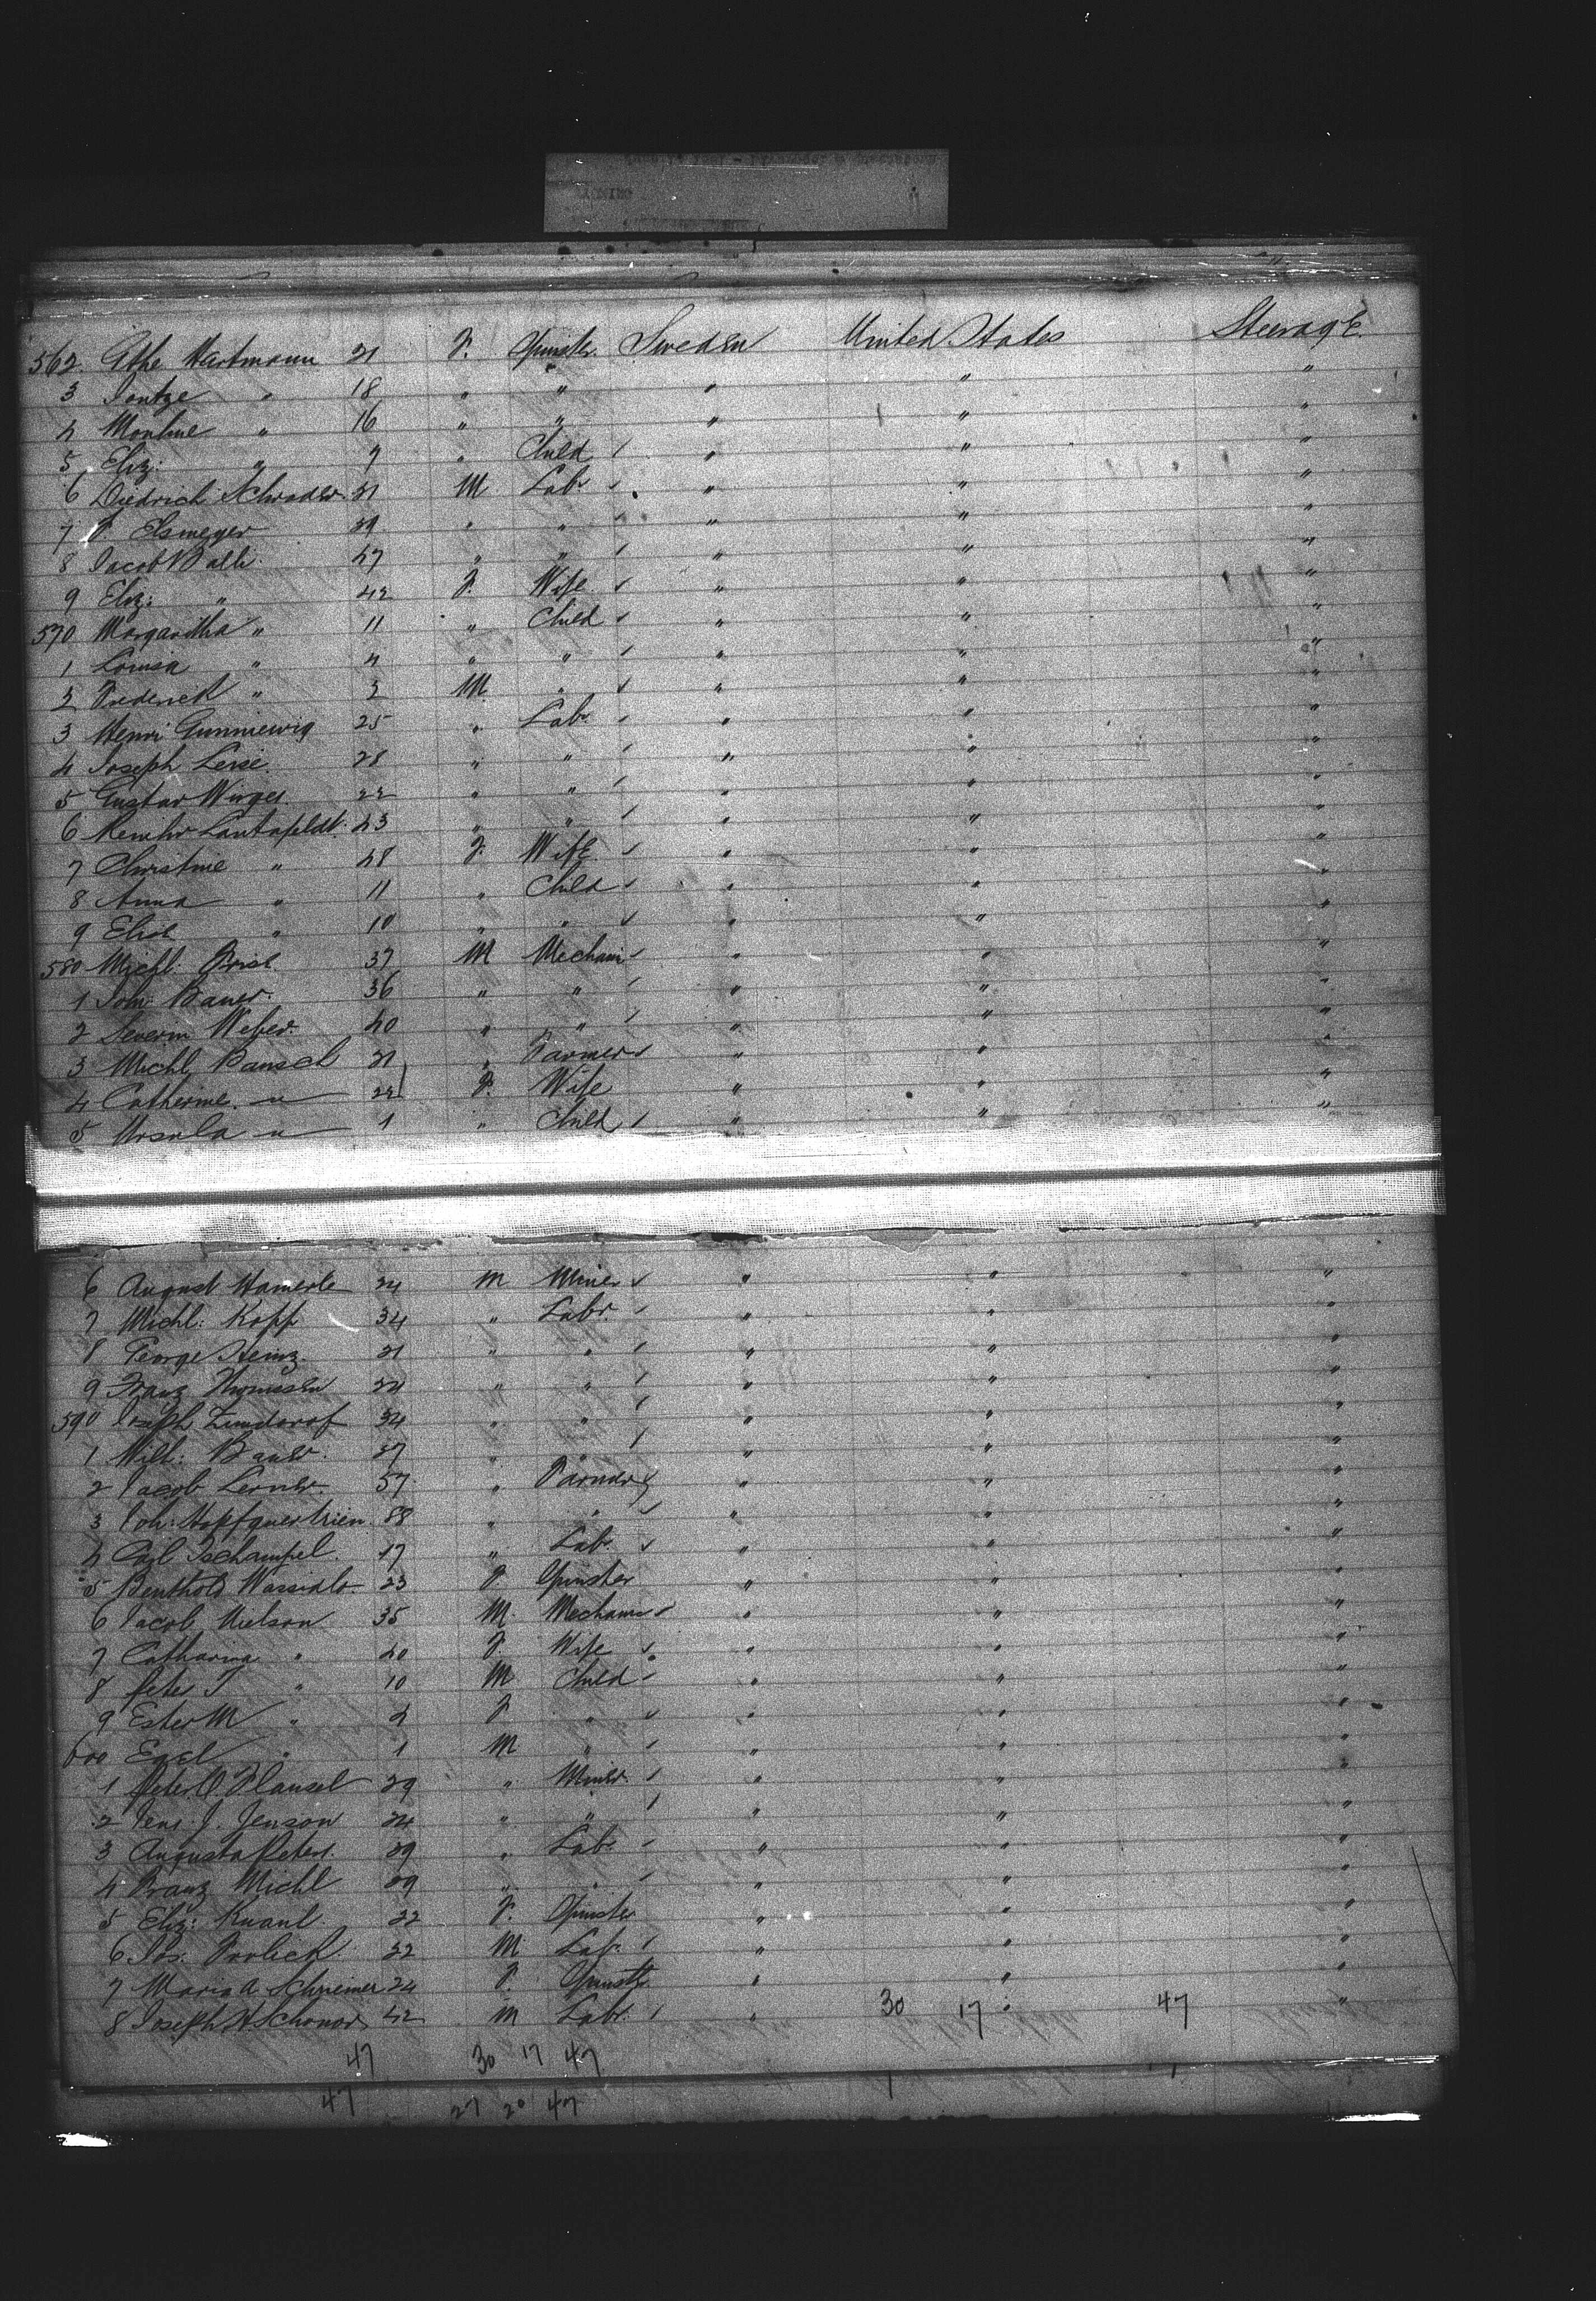 562. Gthe Hartmann 21 F. Spinster. Sweden United States Steerage.
3 " 18 " " " " "
4 " 16 " " " " "
5 Eliz: " 9 " Child " " "
6 Diedrich Schroder. 21 M Labr " " "
7 F Elsmeyer 29 " " " " "
8 Jacob Balli. 47 " " " " "
9 Eliz: " 42 F. Wife " " "
570 Margaretha " 11 " Child " " "
1 Louisa " 4 " " " " "
2 Frederick " 3 M " " " "
3 Henri Gunniewig 25 " Labr " " "
4 Joseph Leise. 28 " " " " "
5 Gustav Wirges. 22 " " " " "
6 Lantafeldt. 43 " " " " "
7 Christine " 48 F. Wife " " "
8 Anna " 11 " Child " " "
9 Elise " 10 " " " " "
580 Michl. 37 M Mechani " " "
1 Joh: Bauer. 36 " " " " "
2 Severin Weber. 40 " " " " "
3 Michl Bausch 21 " Farmer " " "
4 Catherine. " 22 F. Wife " " "
5 Ursula " 1 " Child " " "
6 August Hamerle 24 M Miner " " "
7 Michl: Kopp 34 " Labr. " " "
8 George Heinz. 21 " " " " "
9 Franz Thomssen 24 " " " " "
590 Joseph Zundorof 34 " " " " "
1 Wilh: Bauer. 27 " " " " "
2 Jacob Lerner. 57 " Farmer " " "
3 Joh: 88 " " " " "
4 Carl Tschampel. 17 " Labr " " "
5 Benthold Wassidlo. 23 F. Spinster " " "
6 Jacob Nielson 35 M. Mechani " " "
7 Catharina " 40 F. Wife " " "
8 Peter J " 10 M Child " " "
9 Ester M " 2 F " " " "
600 Egel " 1 M " " " "
1 Peter O Hansel 29 " Miner. " " "
2 Jens J. Jenson 24 " " " " "
3 Augusta Peters. 29 " Labr " " "
4 Franz Michl 29 " " " " "
5 Eliz: Knaul. 22 F. Spinster " " "
6 Jos: Frolich 22 M Lab. " " "
7 Maria A Schreiner 24 F. Spinstr. " " "
8 Joseph H Schonor 42 M Labr. " 30 17 " 47 "
47 30 17 47
47 27 20 47